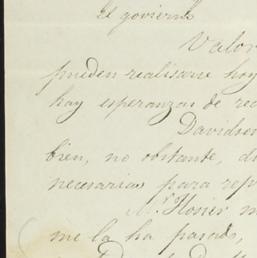 el govierno
Valor
pueden realisarse hoy
hay esperanzas de rea
Davidson
bien, no obstante, di
necesarias para rep
Mr. Hosier m
me la ha pasado,